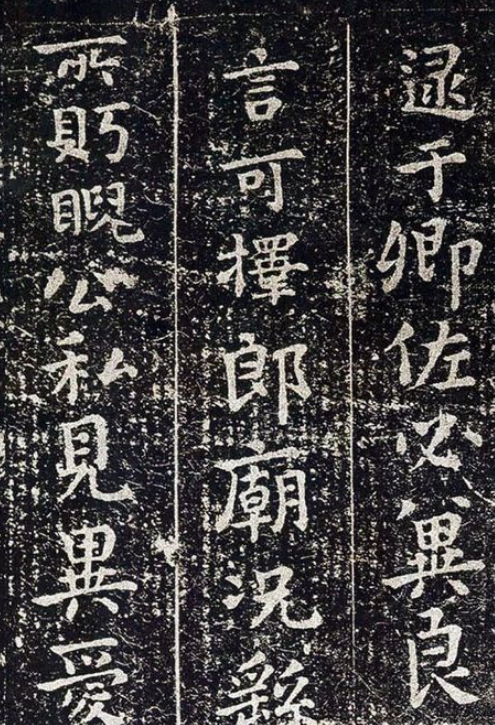 逮于卿佐必冀良
言可擇郎廟況繇
所眄睨公私見異愛